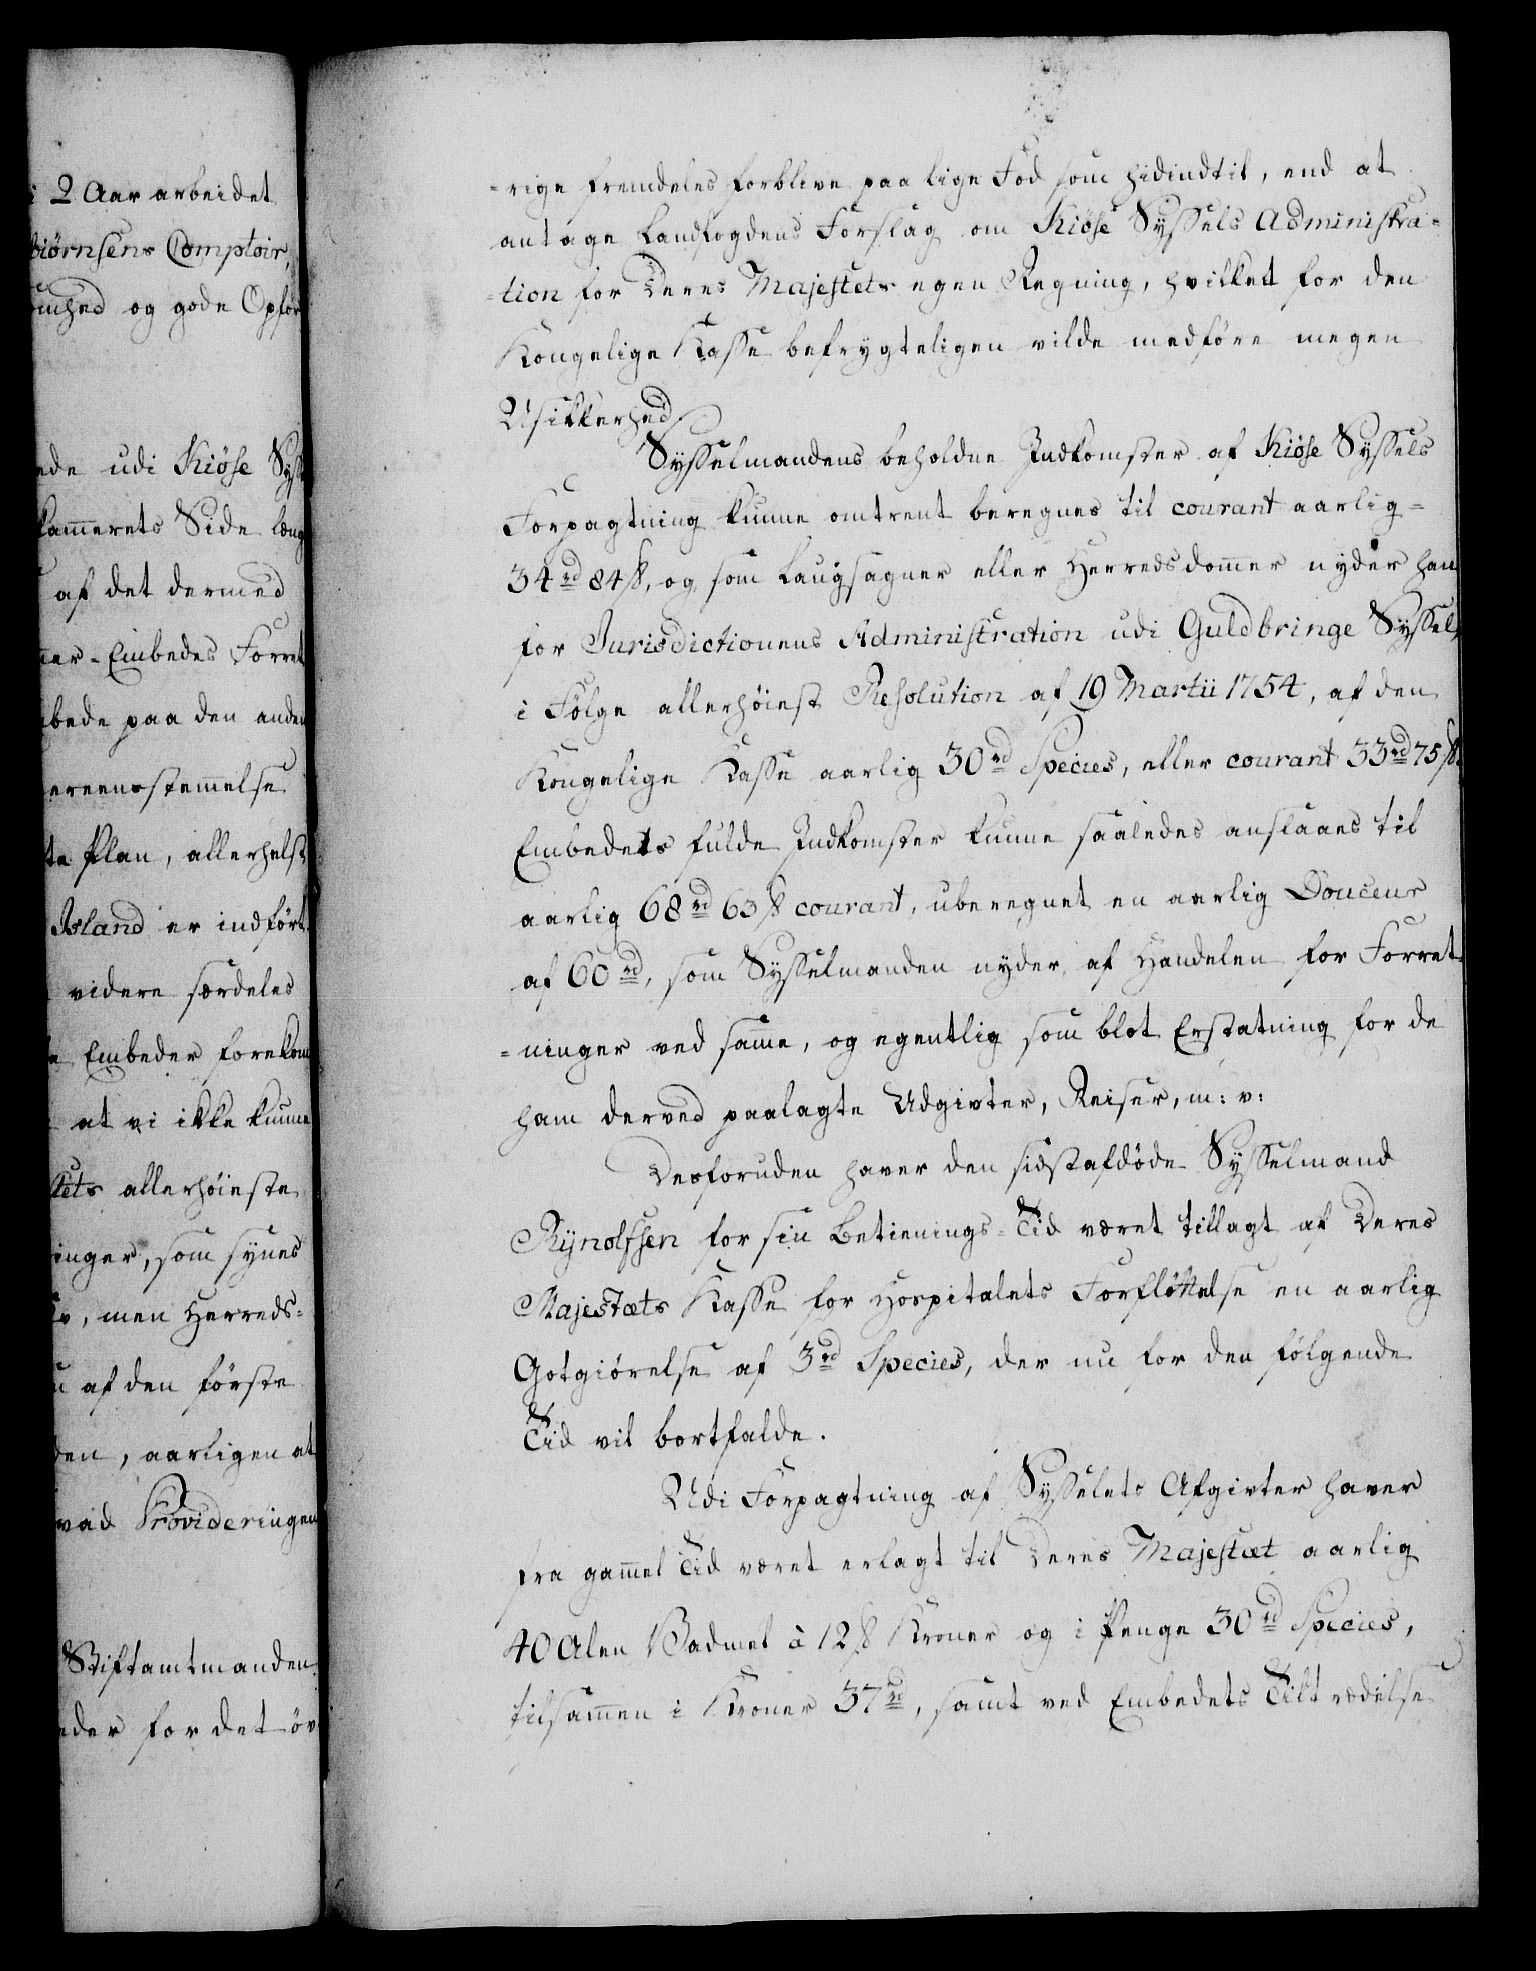 i 2 Aar arbeidet
biörnsens Comptoir,
omhed og gode Opför
ede udi Kiöse Syss
kam̄erets Side læng
af det dermed
mer-Embedes Forret
bede paa den anden
ereensstem̄else
te Plan, allerhelst
Island er indfört.
videre særdeles
Embeder forekom
at vi ikke kunne
tets allerhöieste
inger, som synes
men Herreds-
af den förste
den, aarligen at
vad Provideringen
Stiftamtmanden
eder for det öv
-rige fremdeles forblive paa lige Fod som hidindtil, end at
antage Landfogdens Forslag om Kiöse Syssels Administra-
-tion for Deres Majestets egen Regning, hvilket for den
Kongelige Kasse befrygteligen vilde medföre megen
Usikkerhed.
Sysselmandens beholdne Indkomster af Kiöse Syssels
Forpagtning kunne omtrent beregnes til courant aarlig-
34 rd 84 ß, og som Laugsagner eller Herredsdom̄er nyder han
for Jurisdictionens Administration udi Guldbringe Syssel,
i Fölge allerhöiest Resolution af 19 Martii 1754, af den
Kongelige Kasse aarlig 30 rd Species, eller courant 33 rd 75 ß.
Embedets fulde Indkomster kunne saaledes anslaaes til
aarlig 68 rd 63 ß courant, uberegnet en aarlig Douceur
af 60 rd, som Sysselmanden nyder af Handelen for Forret-
-ninger ved sam̄e, og egentlig som blot Erstatning for de
ham derved paalagte Udgivter, Reiser, m: v:
Desforuden haver den sidstafdöde Sysselmand
Rijnolfsen for sin Betienings-Tid været tillagt af Deres
Majestæts Kasse for Hospitalets Forflöttelse en aarlig
Gotgiörelse af 3 rd Species, der nu for den fölgende
Tid vil bortfalde.
Udi Forpagtning af Sysselets Afgivter haver
fra gam̄el Tid været erlagt til Deres Majestæt aarlig
40 Alen Vadmel à 12 ß Kroner og i Penge 30 rd Species,
tilsam̄en i Kroner 37 rd, samt ved Embedets Tiltrædelse